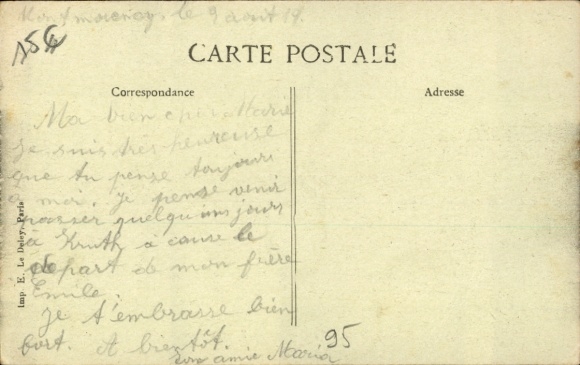 Montmorency, le 9 août 14.
CARTE POSTALE
Correspondance
Adresse
Ma bien cher Marie
Je suis très heureuse
que tu pense toujours
à moi. Je pense venir
passer quelqu'uns jours
à Kruth à cause le
départ de mon frère
Emile.
Je t'embrasse bien
fort. A bientôt.
ton amie Maria
95
Imp. E. Le Deley, Paris